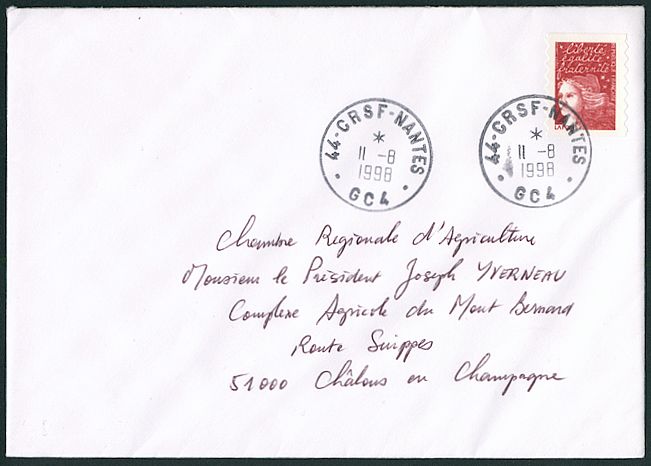 liberté
égalité
fraternité
44-CRSF-NANTES
*
11 -8
1998
GC4
44-CRSF-NANTES
*
11 -8
1998
GC4
Chambre Regionale d'Agriculture
Monsieur le Président Joseph YVERNEAU
Complexe Agricole du Mont Bernard
Route Suippes
51000 Châlons en Champagne